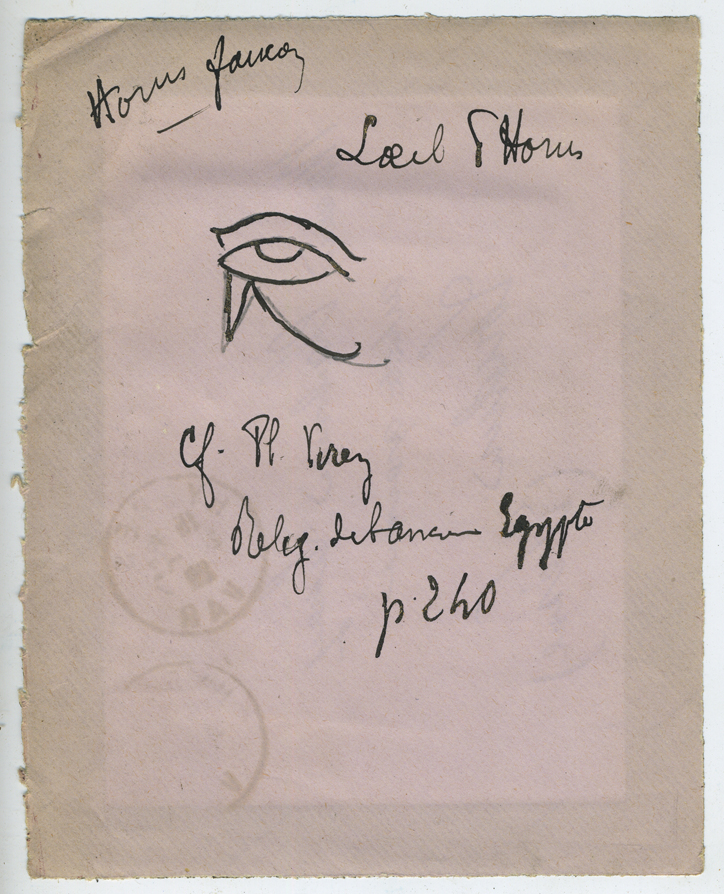 Horus faucon
L'œil d'Horus
Cf. Ph. Virey
Relig. de l'ancienne Egypte
p. 240